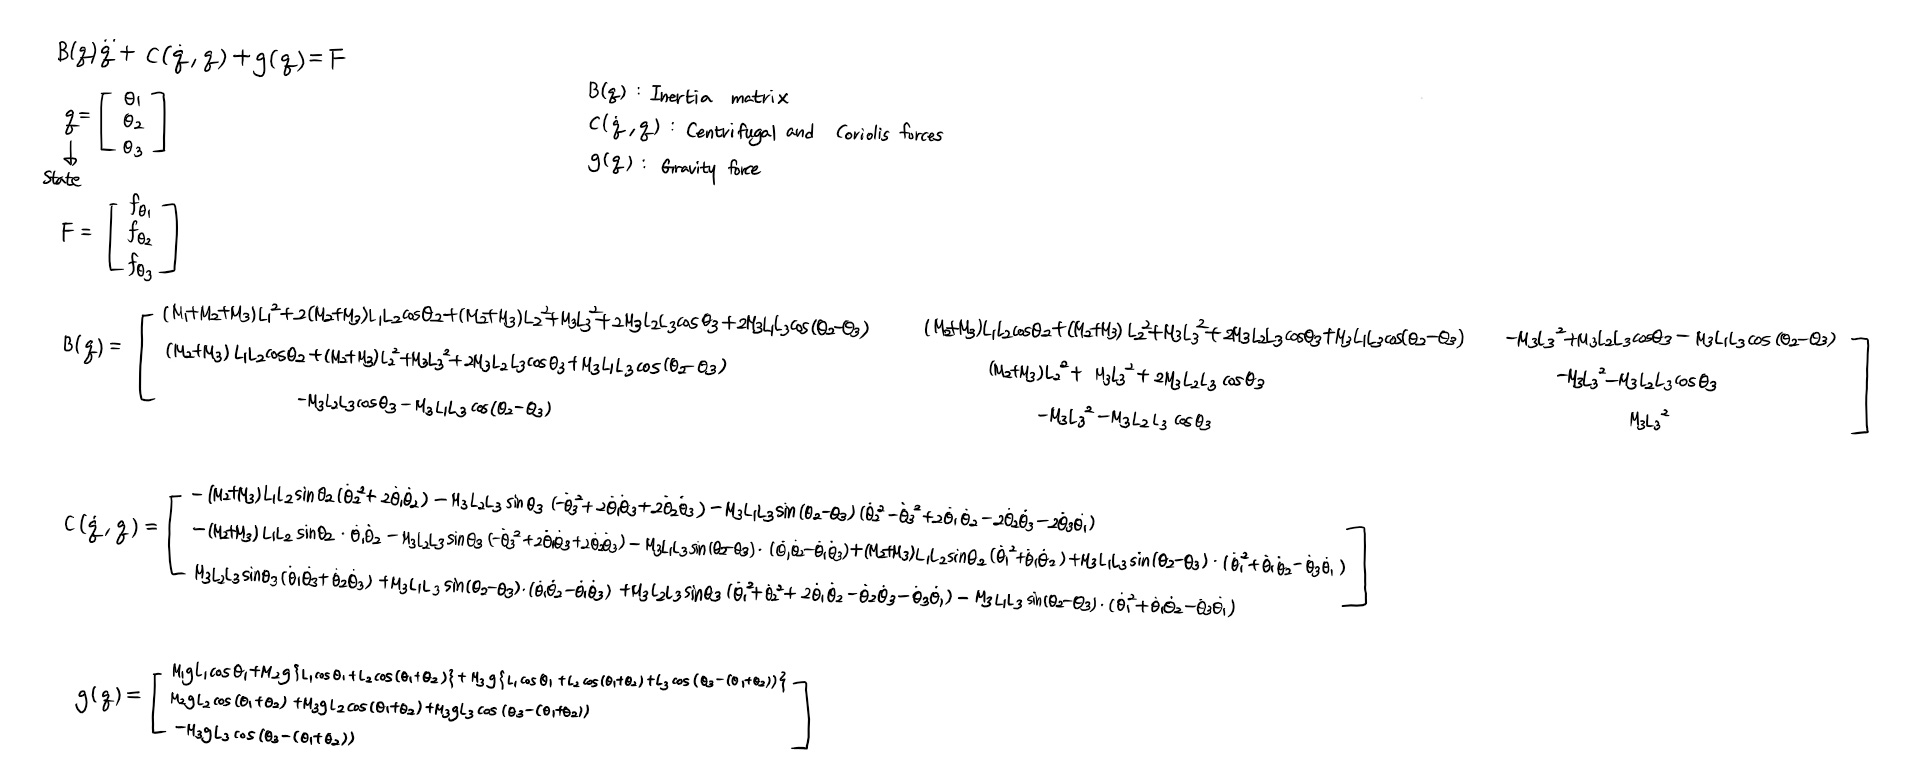 B(q)q̈ + C(q̇, q) + g(q) = F
q = [θ1 θ2 θ3]
↓
State
B(q) : Inertia matrix
C(q̇, q) : Centrifugal and Coriolis forces
g(q) : Gravity force
F = [fθ1 fθ2 fθ3]
B(q) =
(M1+M2+M3)L1²+2(M2+M3)L1L2cosθ2+(M2+M3)L2²+M3L3²+2M3L2L3cosθ3+2M3L1L3cos(θ2-θ3) (M2+M3)L1L2cosθ2+(M2+M3)L2²+M3L3²+2M3L2L3cosθ3+M3L1L3cos(θ2-θ3) -M3L3²+M3L2L3cosθ3-M3L1L3cos(θ2-θ3)
(M2+M3)L1L2cosθ2+(M2+M3)L2²+M3L3²+2M3L2L3cosθ3+M3L1L3cos(θ2-θ3) (M2+M3)L2²+M3L3²+2M3L2L3cosθ3 -M3L3²-M3L2L3cosθ3
-M3L2L3cosθ3-M3L1L3cos(θ2-θ3) -M3L3²-M3L2L3cosθ3 M3L3²
C(q̇, q) =
-(M2+M3)L1L2sinθ2(θ̇2²+2θ̇1θ̇2)-M3L2L3sinθ3(-θ̇3²+2θ̇1θ̇3+2θ̇2θ̇3)-M3L1L3sin(θ2-θ3)(θ̇2²-θ̇3²+2θ̇1θ̇2-2θ̇2θ̇3-2θ̇3θ̇1)
-(M2+M3)L1L2sinθ2·θ̇1θ̇2-M3L2L3sinθ3(-θ̇3²+2θ̇1θ̇3+2θ̇2θ̇3)-M3L1L3sin(θ2-θ3)·(θ̇1θ̇2-θ̇1θ̇3)+(M2+M3)L1L2sinθ2(θ̇1²+θ̇1θ̇2)+M3L1L3sin(θ2-θ3)·(θ̇1²+θ̇1θ̇2-θ̇3θ̇1)
M3L2L3sinθ3(θ̇1θ̇3+θ̇2θ̇3)+M3L1L3sin(θ2-θ3)·(θ̇1θ̇2-θ̇1θ̇3)+M3L2L3sinθ3(θ̇1²+θ̇2²+2θ̇1θ̇2-θ̇2θ̇3-θ̇3θ̇1)-M3L1L3sin(θ2-θ3)·(θ̇1²+θ̇1θ̇2-θ̇3θ̇1)
g(q) =
M1gL1cosθ1+M2g{L1cosθ1+L2cos(θ1+θ2)}+M3g{L1cosθ1+L2cos(θ1+θ2)+L3cos(θ3-(θ1+θ2))}
M2gL2cos(θ1+θ2)+M3gL2cos(θ1+θ2)+M3gL3cos(θ3-(θ1+θ2))
-M3gL3cos(θ3-(θ1+θ2))